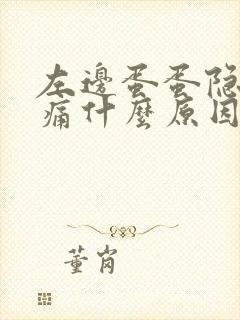 左邊蛋蛋隐
痛什麼原因
董岗